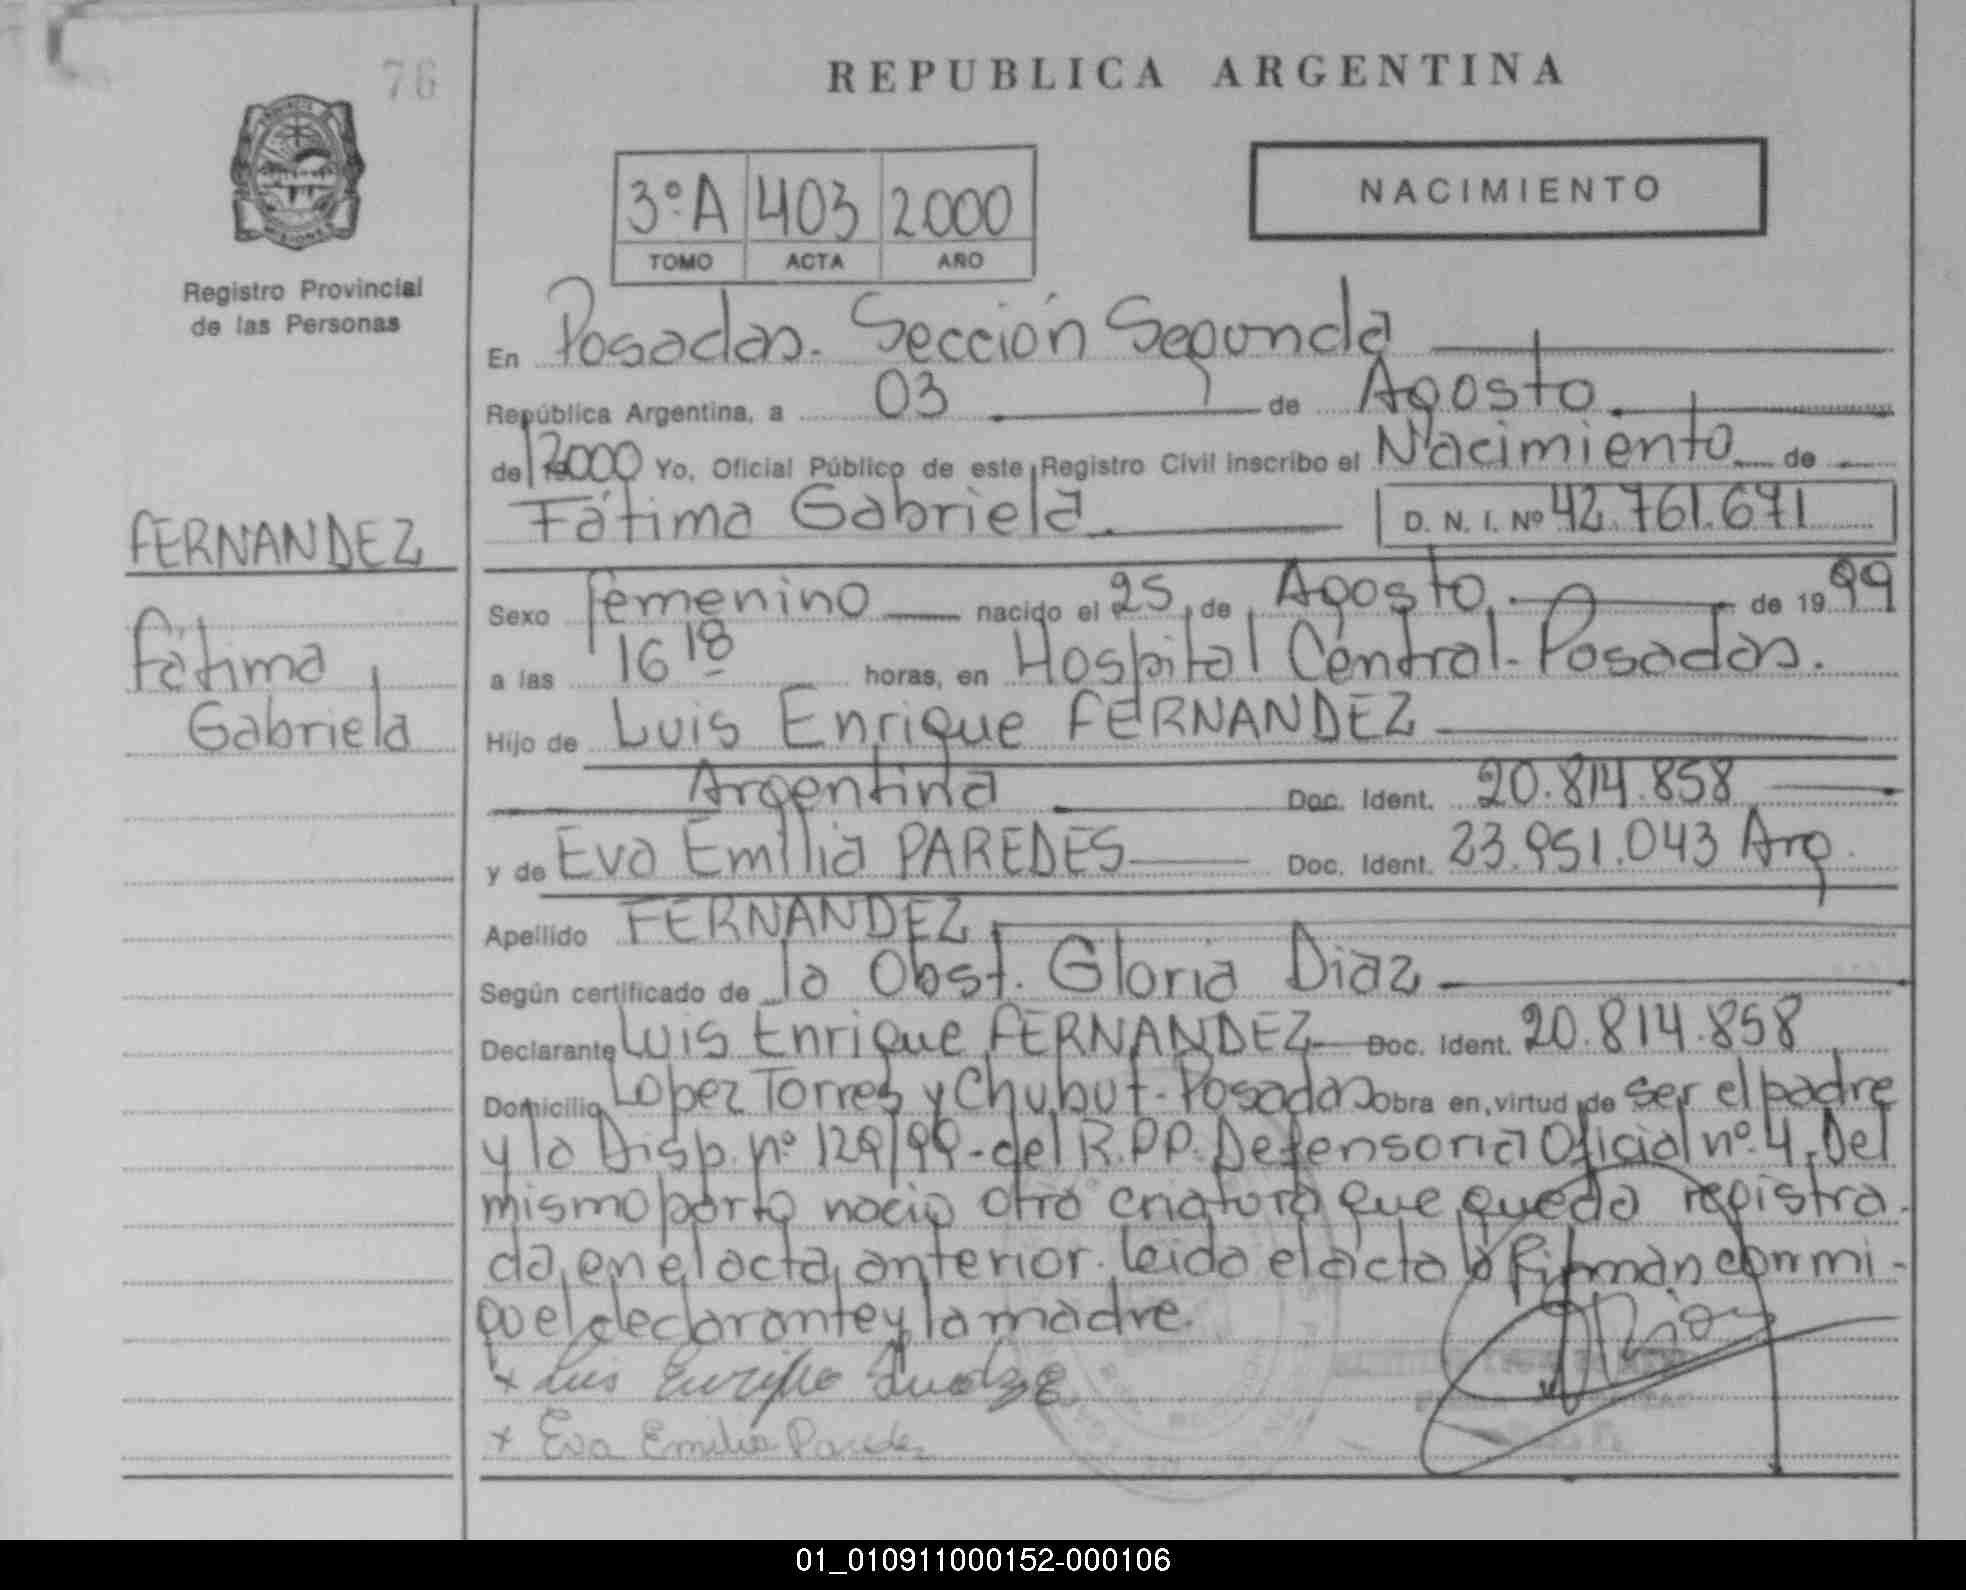 76
REPUBLICA ARGENTINA
3º A 403 2000
TOMO ACTA AÑO
NACIMIENTO
Registro Provincial
de las Personas
En Posadas. Sección Segunda
República Argentina, a 03 de Agosto
de 2000 Yo, Oficial Público de este Registro Civil inscribo el Nacimiento de
Fátima Gabriela D. N. I. Nº 42.761.671
FERNANDEZ
Fátima
Gabriela
Sexo femenino nacido el 25 de Agosto de 1999
a las 16 18 horas, en Hospital Central - Posadas.
Hijo de Luis Enrique FERNANDEZ
Argentina Doc. Ident. 20.814.858
y de Eva Emilia PAREDES Doc. Ident. 23.951.043 Arg.
Apellido FERNANDEZ
Según certificado de la Obst. Gloria Diaz
Declarante Luis Enrique FERNANDEZ Doc. Ident. 20.814.858
Domicilio Lopez Torres y Chubut - Posadas obra en virtud de ser el padre
y la Disp. nº 129/99 - del R.P.P. Defensoria Oficial nº 4. Del
mismo parto nació otra criatura que queda registra-
da en el acta anterior. Leida el acta la firman conmi-
go el declarante y la madre.
x Luis Enrique
x Eva Emilia Paredes
01_010911000152-000106